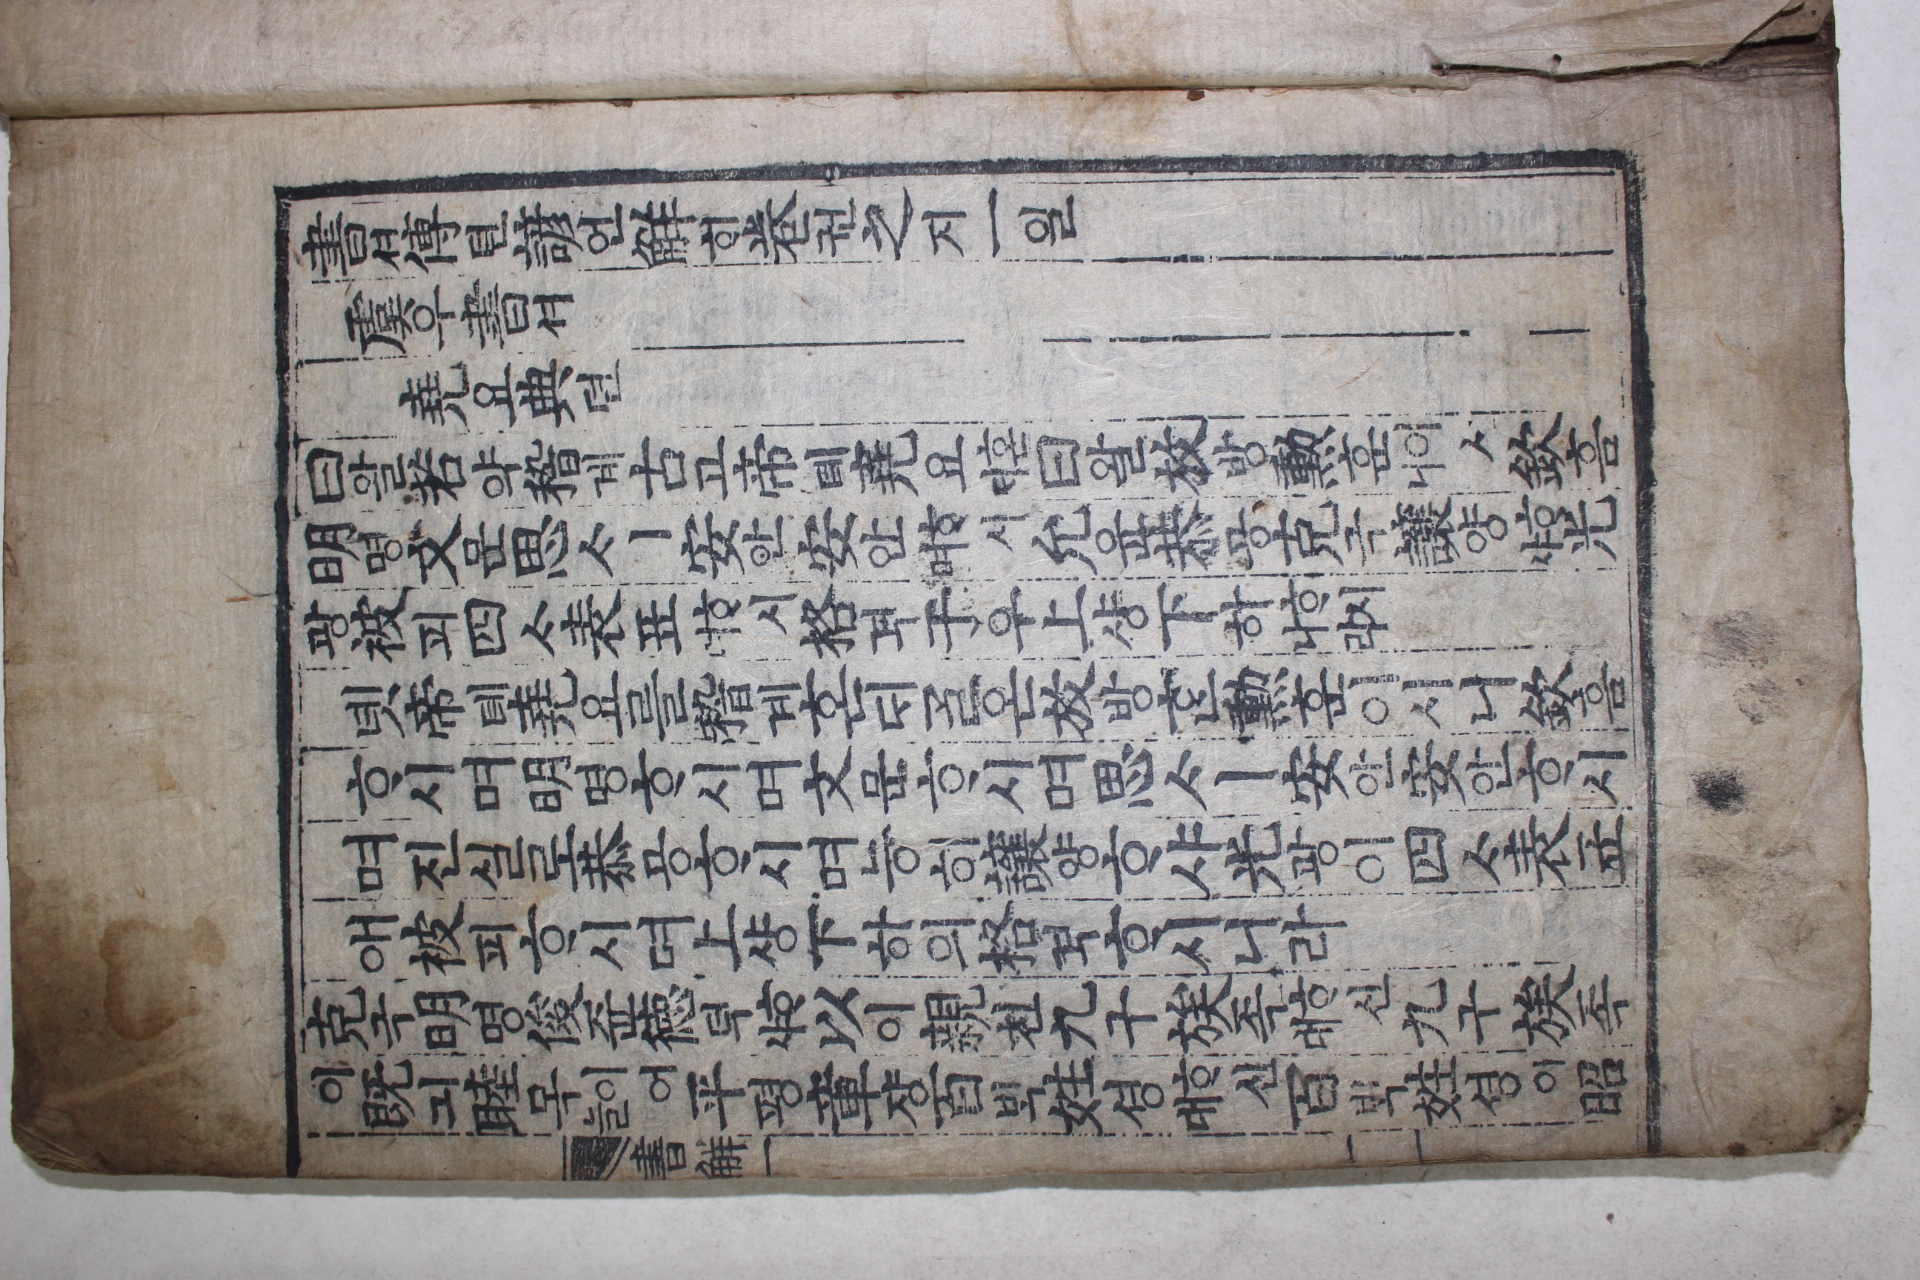 書셔傳뎐諺언解ᄒᆡ卷권之지一일
虞우書셔
堯요典뎐
曰왈若약稽계古고帝뎨堯요혼ᄃᆡ曰왈放방勳훈이시니欽흠
明명文문思ᄉᆞㅣ安안安안ᄒᆞ시며允윤恭공克극讓양ᄒᆞ샤光
광被피四ᄉᆞ表표ᄒᆞ시며格격于우上샹下하ᄒᆞ시니라
녯帝뎨堯요를稽계혼ᄃᆡᄀᆞᆯ온放방ᄒᆞᆫ勳훈이시니欽흠
ᄒᆞ시며明명ᄒᆞ시며文문ᄒᆞ시며思ᄉᆞㅣ安안安안ᄒᆞ시
며진실로恭공ᄒᆞ시며능히讓양ᄒᆞ샤光광이四ᄉᆞ表표
애被피ᄒᆞ시며上샹下하의格격ᄒᆞ시니라
克극明명俊쥰德덕ᄒᆞ샤以이親친九구族족ᄒᆞ신대九구族족
이旣긔睦목이어늘平평章쟝百ᄇᆡᆨ姓셩ᄒᆞ신대百ᄇᆡᆨ姓셩이昭
書解一